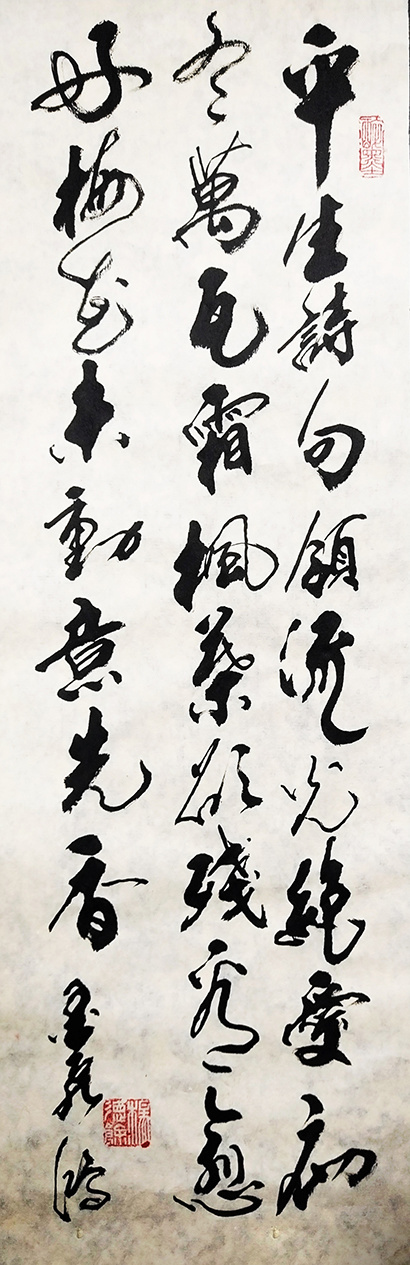 平生詩句領流光絕愛初
冬萬瓦霜楓葉欲殘看愈
好梅花未動意先香